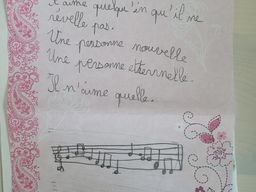 J'aime quelqu'in qu'il ne
révelle pas.
Une personne nouvelle
Une personne éternnelle.
Il n'aime quelle.